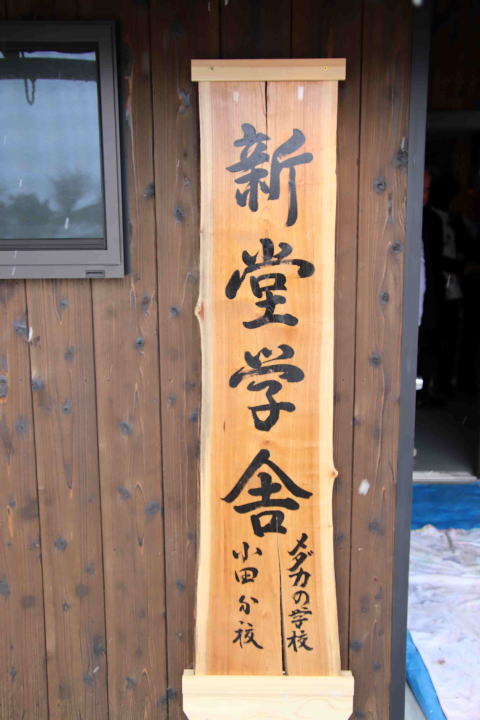 新堂学舎
メダカの学校
小田分校